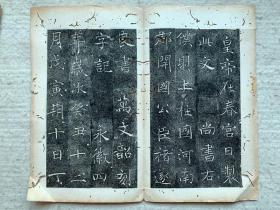 皇帝在春宮日製
此文 尚書右
僕射上柱國河南
郡開國公臣褚遂
良書 萬文韶刻
字記 永徽四
年歲次癸丑十二
月戊寅朔十日丁